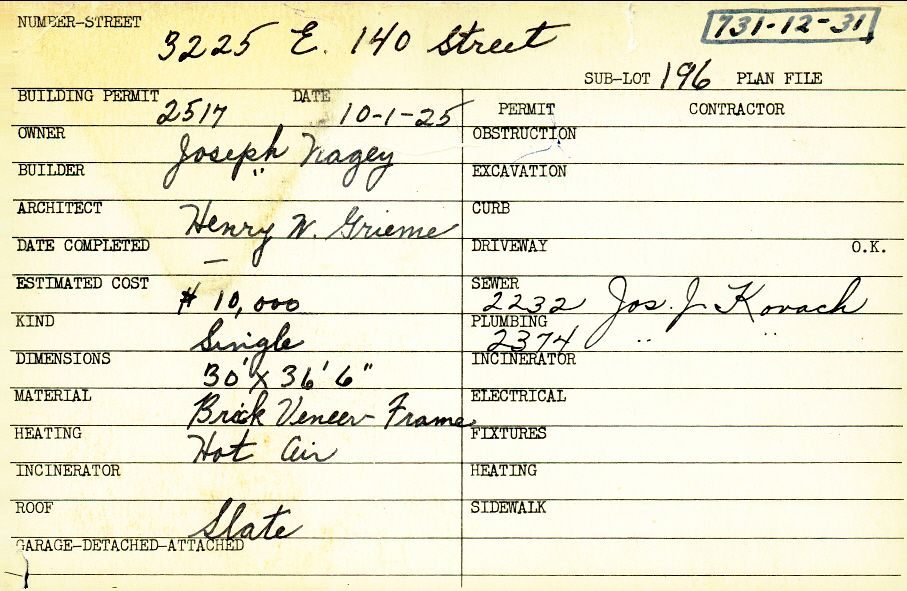 NUMBER-STREET 3225 E. 140 Street 731-12-31
SUB-LOT 196 PLAN FILE
BUILDING PERMIT 2517 DATE 10-1-25 PERMIT CONTRACTOR
OWNER Joseph Nagey OBSTRUCTION
BUILDER " EXCAVATION
ARCHITECT Henry W. Grieme CURB
DATE COMPLETED — DRIVEWAY O.K.
ESTIMATED COST $ 10,000 SEWER 2232 Jos. J. Kovach
KIND Single PLUMBING 2374 " "
DIMENSIONS 30' x 36' 6" INCINERATOR
MATERIAL Brick Veneer Frame ELECTRICAL
HEATING Hot Air FIXTURES
INCINERATOR HEATING
ROOF Slate SIDEWALK
GARAGE-DETACHED-ATTACHED